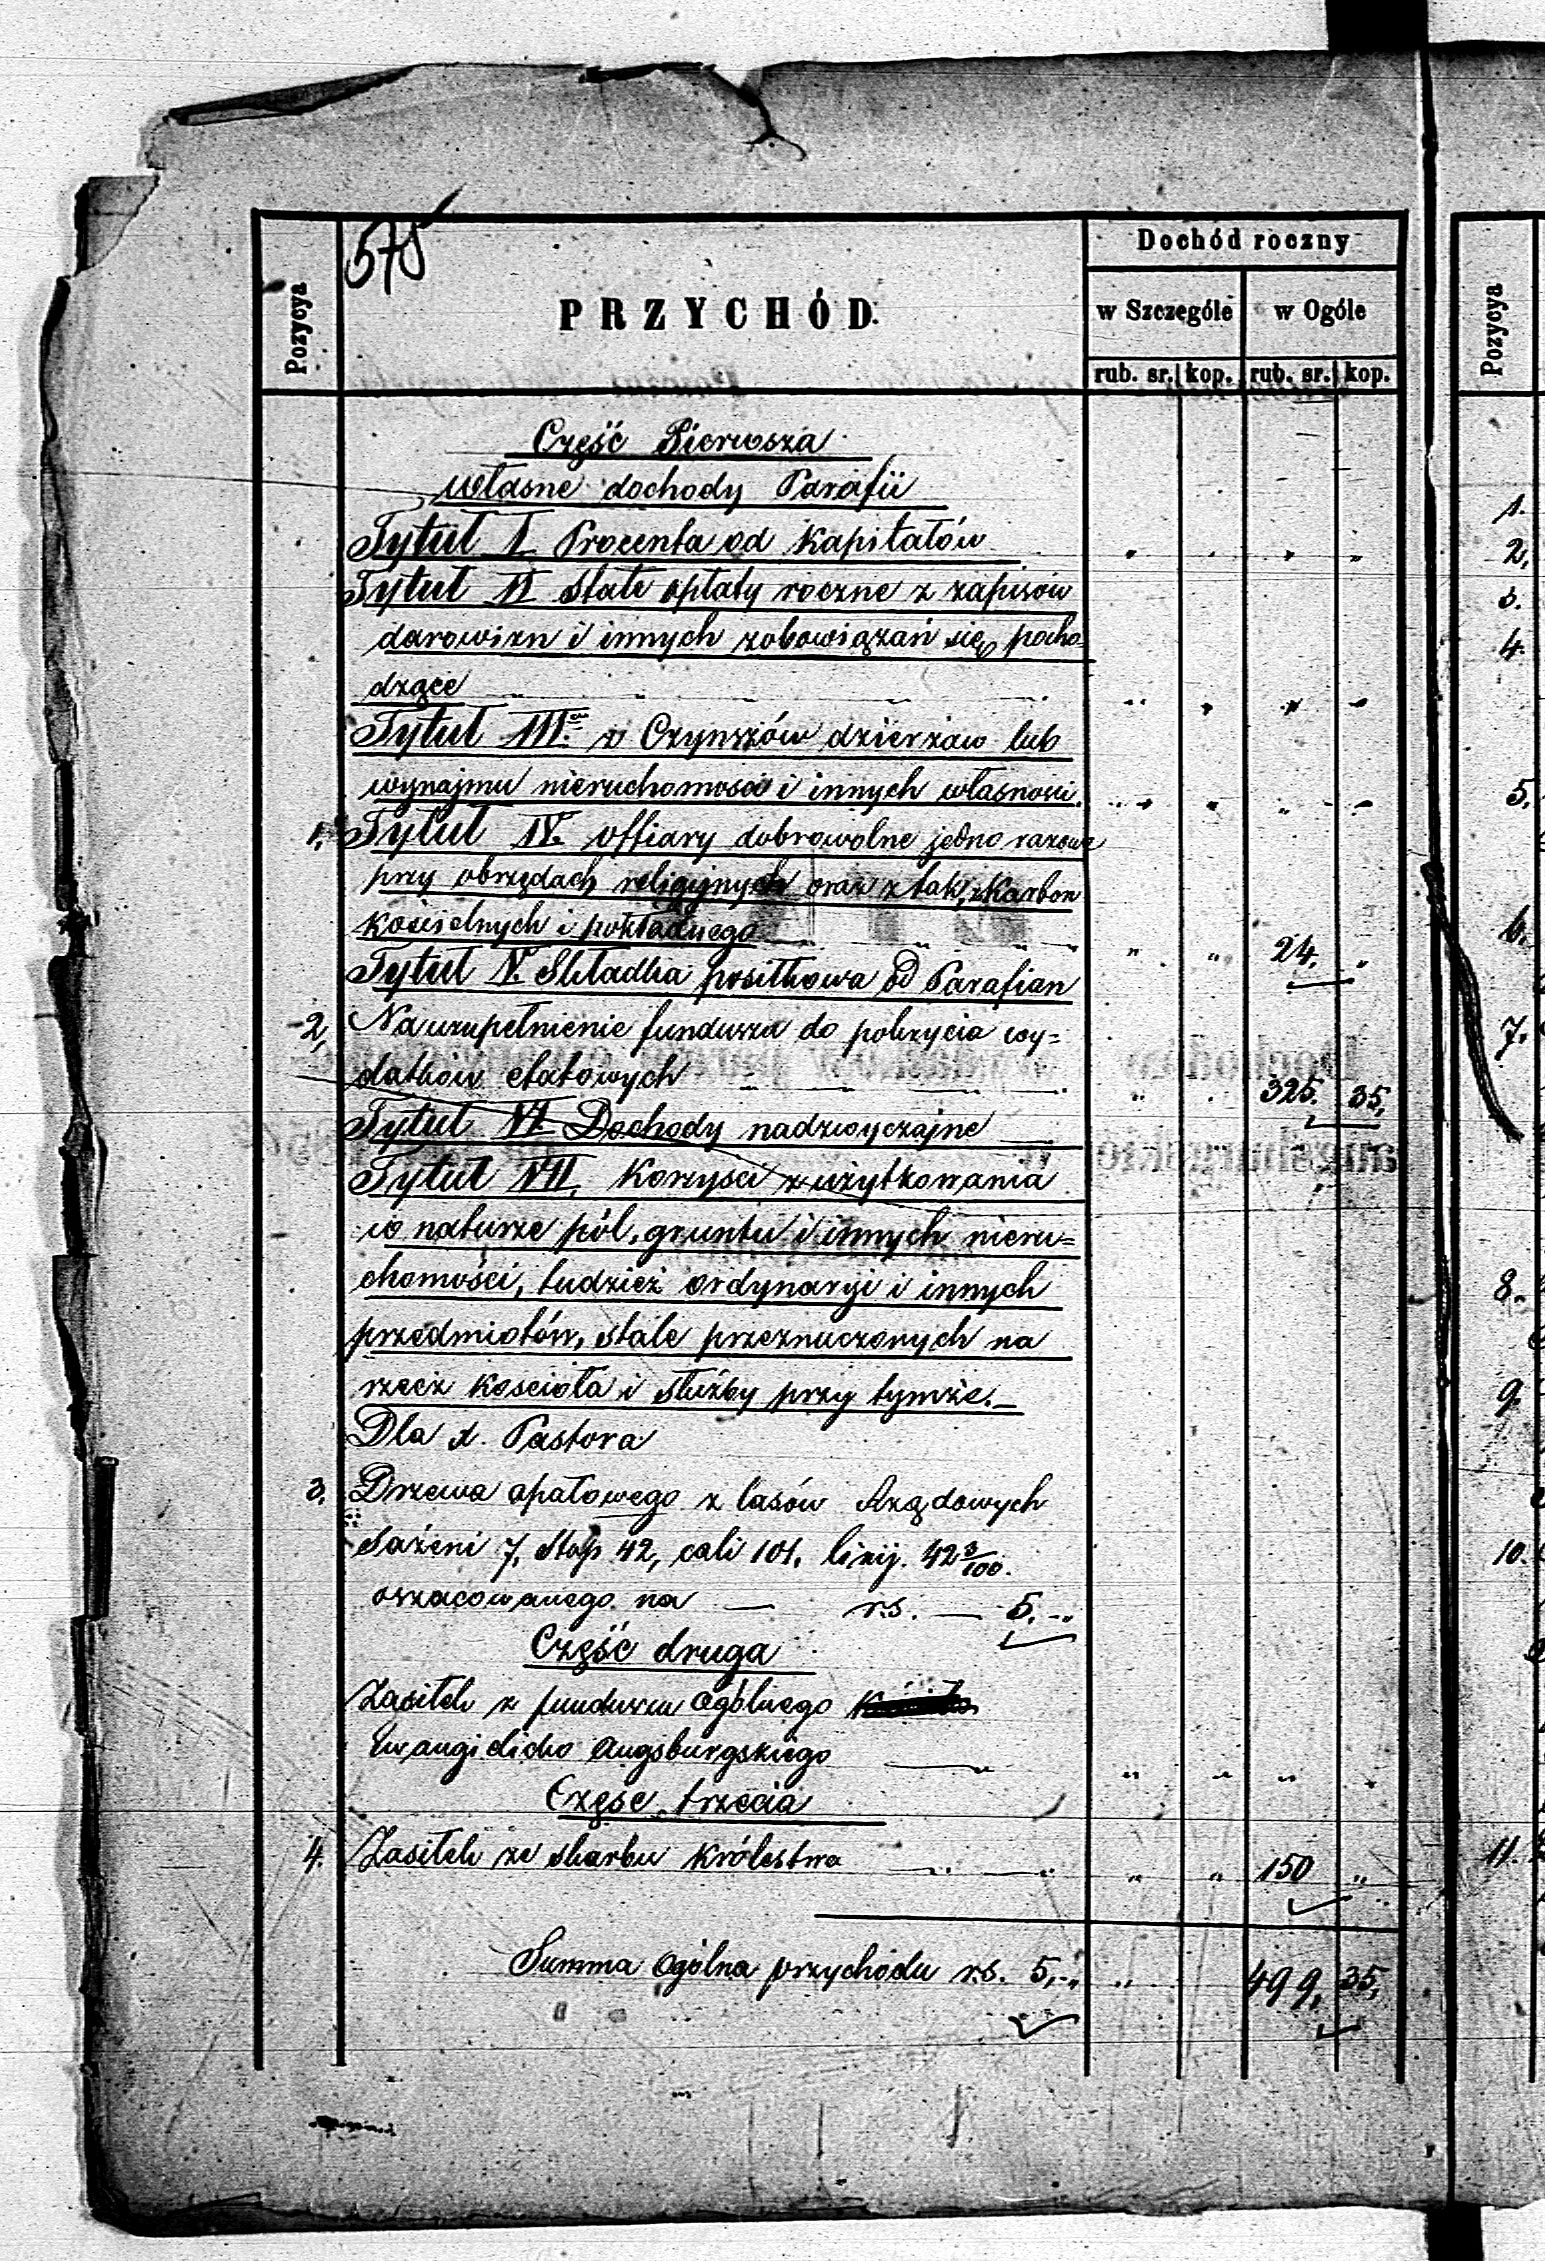 575
Pozycya
PRZYCHÓD.
Dochód roczny
w Szczególe w Ogóle
rub. sr. kop. rub. sr. kop.
Pozycya
Część Pierwsza
własne dochody Parafii
Tytuł I Procenta od Kapitałów " " " "
Tytuł II Stałe opłaty roczne z zapisów
darowizn i innych zobowiązań się pocho-
dzące " " " "
Tytuł III. z Czynszów dzierzaw lub
wynajmu nieruchomości i innych własnosci. " " " "
1. Tytuł IV. offiary dobrowolne jedno razowe
przy obrzędach religijnych oraz z tak, z Karbon
kościelnych i pokładnego " " 24. "
Tytuł V. Składka posiłkowa od Parafian
2, Na uzupełnienie funduszu do pokrycia wy=
datków etatowych " " 325. 35,
Tytuł VI Dochody nadzwyczajne
Tytuł VII. Korzysci z użytkowania
w naturze pól, gruntu i innych nieru=
chomości, tudzież ordynaryi i innych
przedmiotów, stale przeznaczonych na
rzecz Kościoła i służby przy tymże.
Dla x. Pastora
3. Drzewa opałowego z lasów Rządowych
Sażeni 7, Stóp 42, cali 101. linij. 42 3/100.
oszacowanego na — rs. — 5. "
Część druga
Zasiłek z funduszu ogólnego
Ewangielicko Augsburgskiego " " " "
Część trzecia
4. Zasiłek ze skarbu Królestwa " " 150 "
Summa ogólna przychodu rs. 5, " " 499, 35,
1.
2,
3.
4.
5.
6.
7.
8.
9.
10.
11.